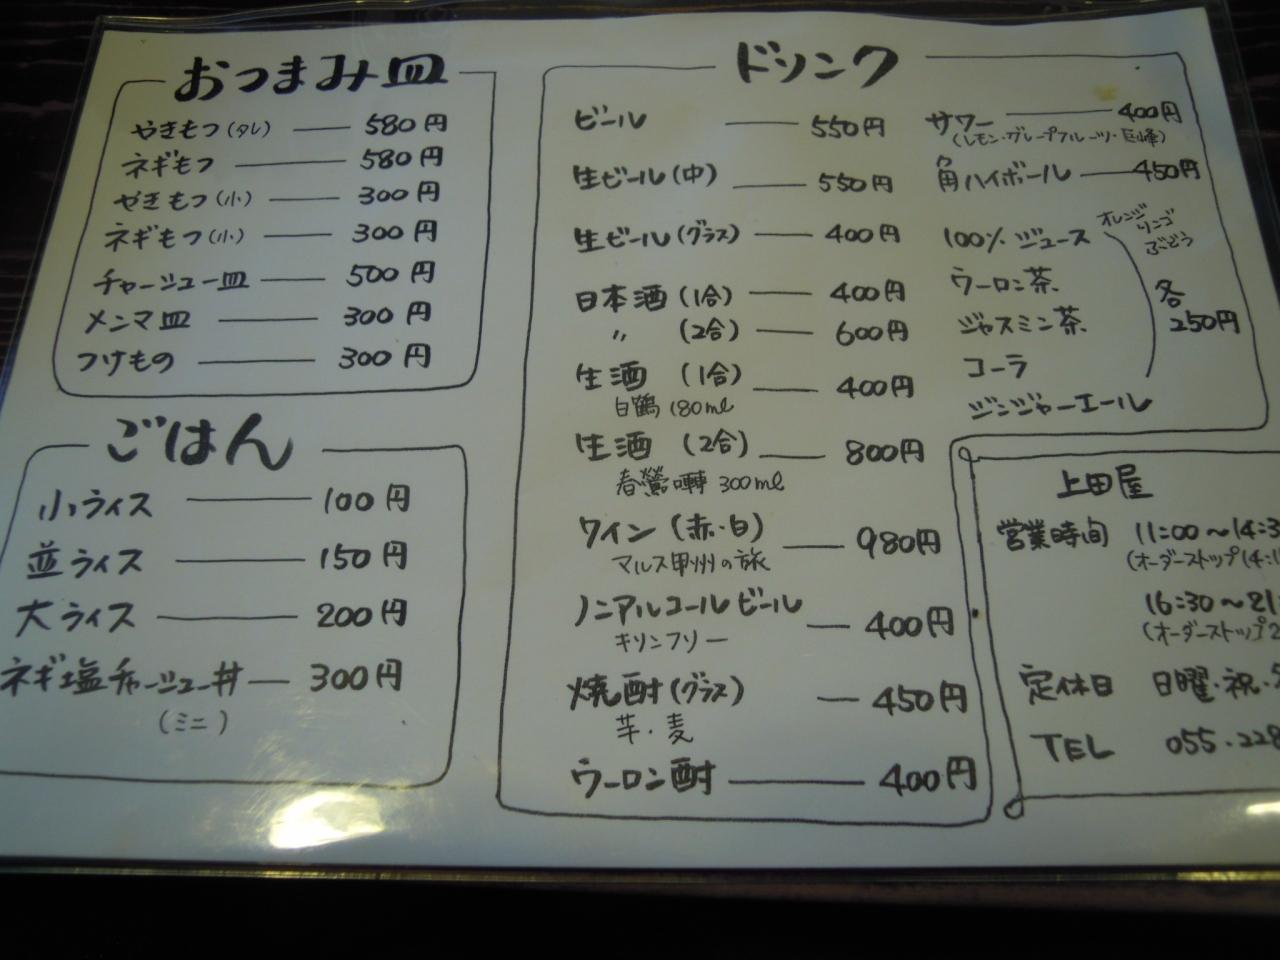 おつまみ皿
やきもつ(タレ) 580円
ネギもつ 580円
やきもつ(小) 300円
ネギもつ(小) 300円
チャーシュー皿 500円
メンマ皿 300円
つけもの 300円
ごはん
小ライス 100円
並ライス 150円
大ライス 200円
ネギ塩チャーシュー丼 300円
(ミニ)
ドリンク
ビール 550円
生ビール(中) 550円
生ビール(グラス) 400円
日本酒(1合) 400円
〃 (2合) 600円
生酒 (1合) 400円
白鶴 180ml
生酒 (2合) 800円
春鶯囀 300ml
ワイン(赤・白) 980円
マルス甲州の旅
ノンアルコールビール 400円
キリンフリー
焼酎(グラス) 450円
芋・麦
ウーロン酎 400円
サワー 400円
(レモン・グレープフルーツ・巨峰)
角ハイボール 450円
100%ジュース オレンジ リンゴ ぶどう
ウーロン茶
ジャスミン茶
コーラ
ジンジャーエール
各250円
上田屋
営業時間 11:00〜14:3
(オーダーストップ14:1
16:30〜21:
(オーダーストップ2
定休日 日曜・祝・
TEL 055・228